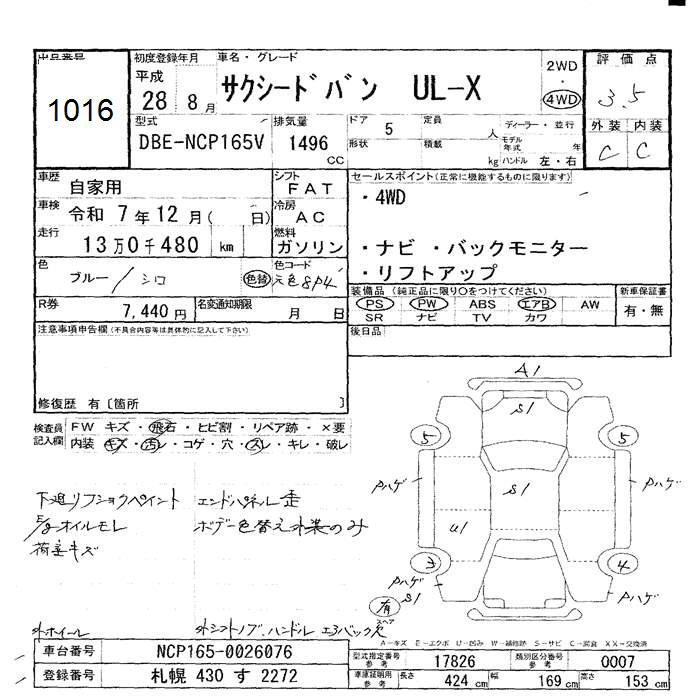 出品番号
1016
初度登録年月
平成
28 8月
車名・グレード
サクシードバン UL-X
2WD
・
4WD
評価点
3.5
外装 内装
C C
型式
DBE-NCP165V
排気量
1496
CC
ドア
5
定員
人
形状
積載
kg
ディーラー・並行
モデル年式
年
ハンドル 左・右
車歴
自家用
シフト
FAT
車検
令和 7年12月( 日)
冷房
AC
走行
13万0千480 km
燃料
ガソリン
セールスポイント(正常に機能するものに限ります)
・4WD
・ナビ ・バックモニター
・リフトアップ
色
ブルー/シロ
色替
色コード
元色8P4
R券
7,440円
名変通知期限
月 日
装備品 (純正品に限り○をつけてください)
PS PW ABS エアB AW
SR ナビ TV カワ
新車保証書
有・無
注意事項申告欄(不具合内容等は具体的に記入して下さい)
後日品
修復歴 有〔箇所 〕
検査員
記入欄
FW キズ・飛石・ヒビ割・リペア跡・×要
内装 キズ・汚レ・コゲ・穴・スレ・キレ・破レ
A1
S1
5
5
Pハゲ
S1
Pハゲ
U1
3
4
Pハゲ
Pハゲ
有
S1
スペア
下廻リフショクペイント
エンドパネル歪
オイルモレ
ボデー色替え外装のみ
荷室キズ
外ホイール
外シフトノブ、ハンドル エアバック
A－キズ E－エクボ U－凹み W－補修跡 S－サビ C－腐食 XX－交換済
車台番号
NCP165-0026076
登録番号
札幌 430 す 2272
型式指定番号
参考
17826
類別区分番号
参考
0007
車庫証明用
参考
長さ
424 cm
幅
169 cm
高さ
153 cm